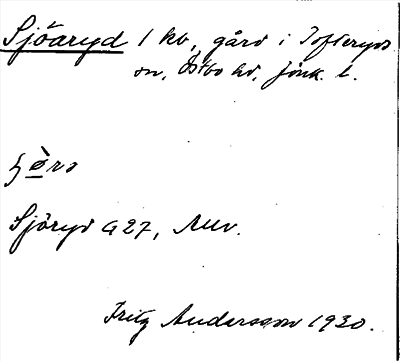 Sjöaryd 1 kb, gård i Tofteryds
sn, Östbo hd, Jönk. l.
Sjöryd G 27, AUV.
Fritz Andersson 1930.